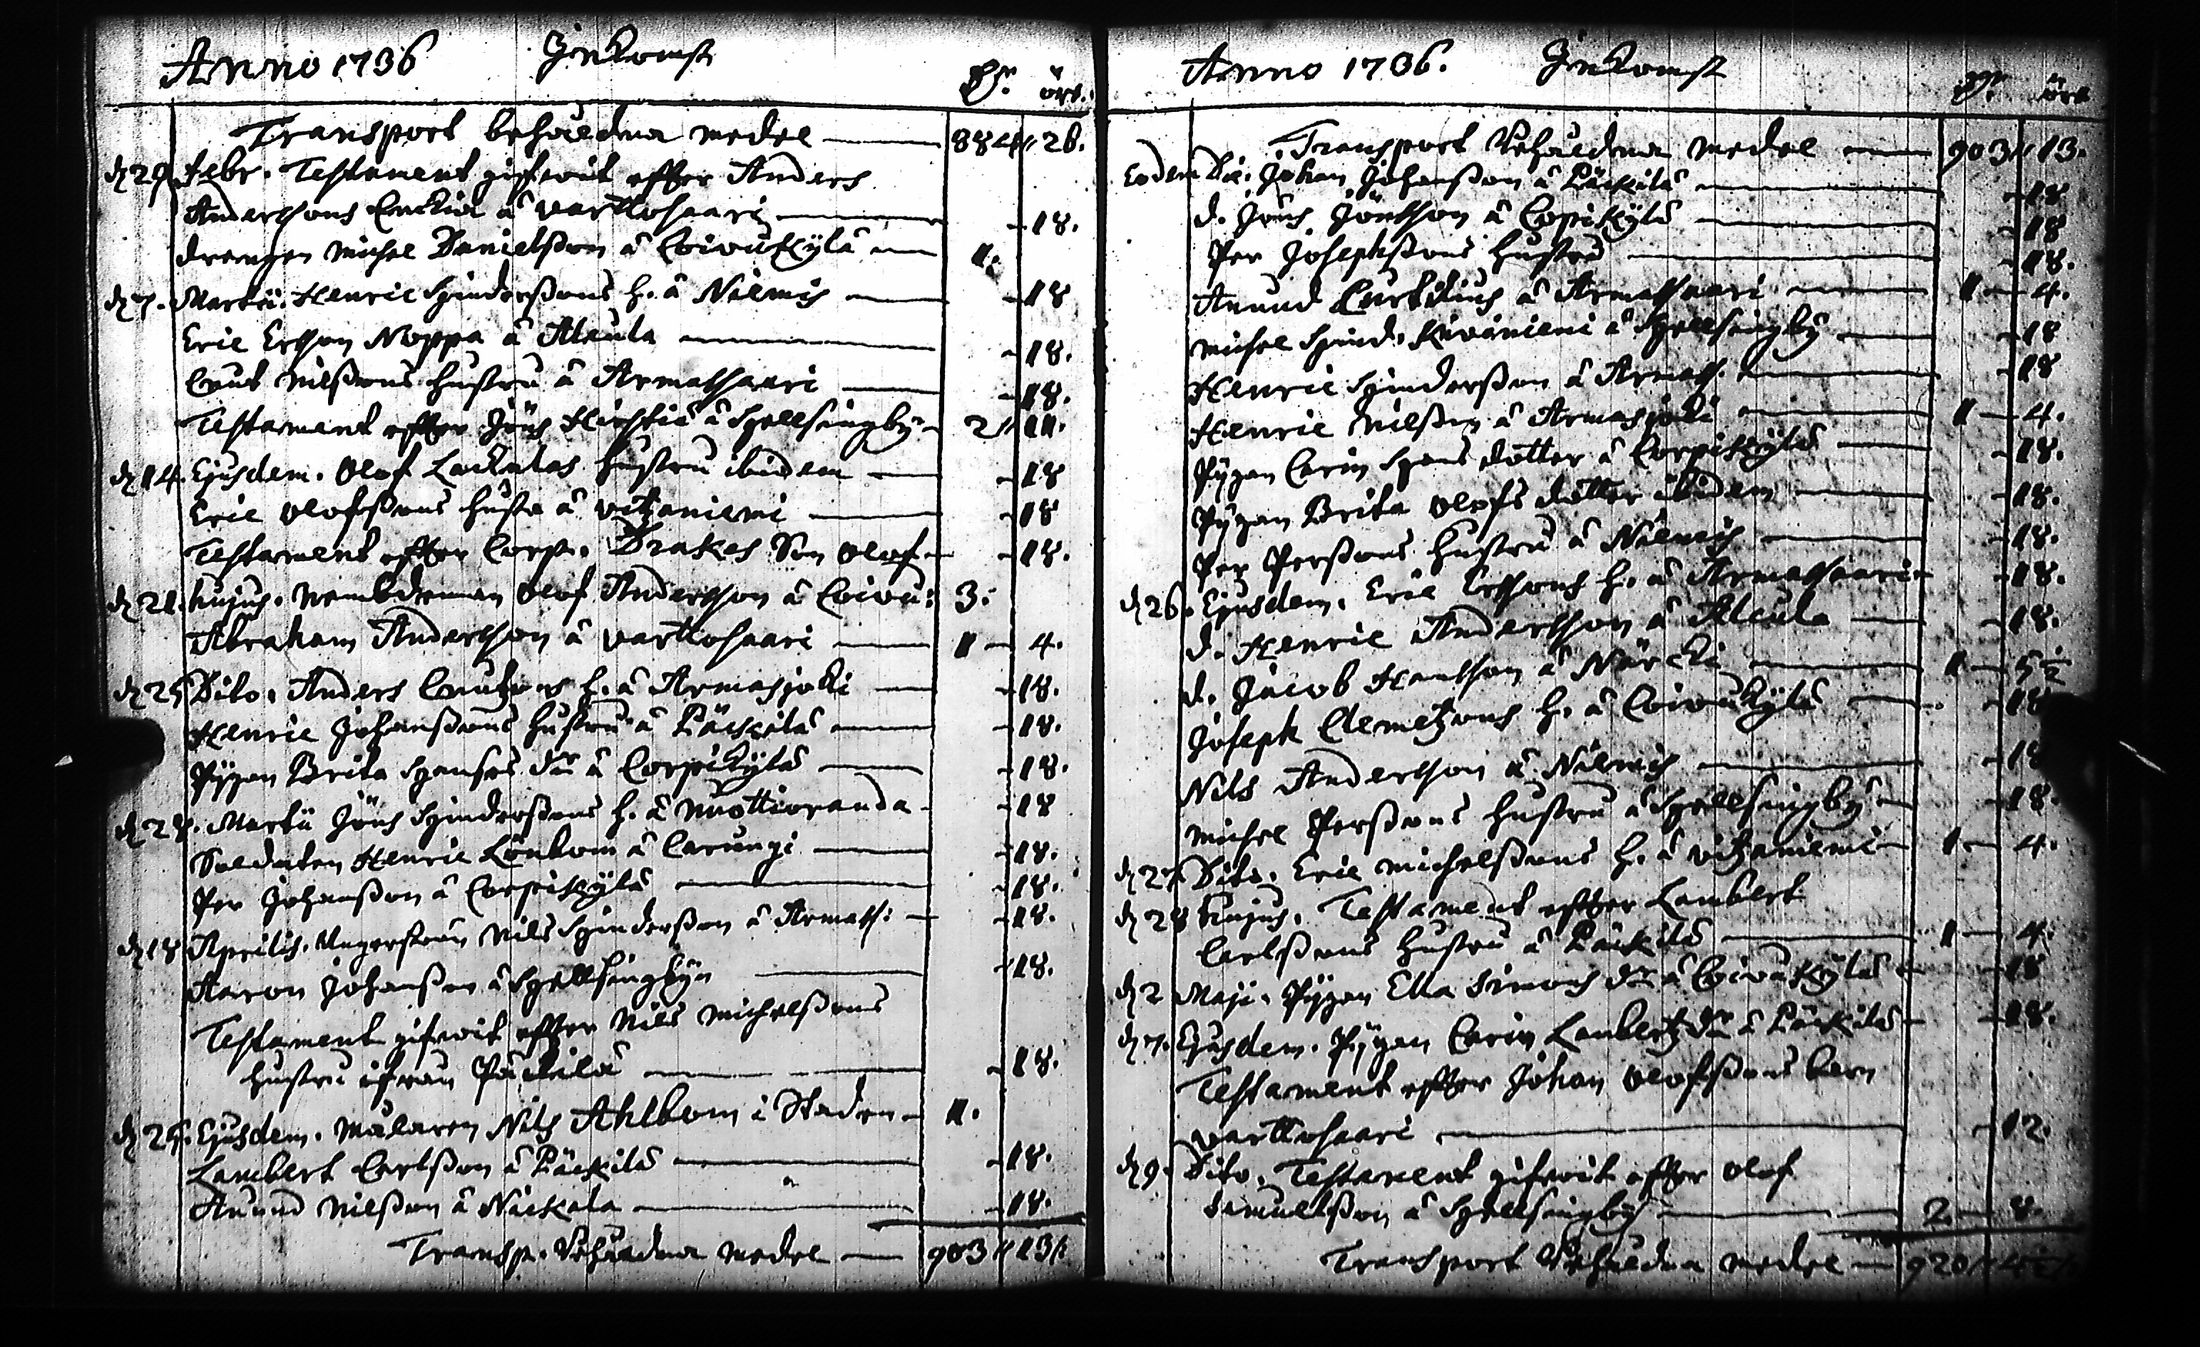 Anno 1736 Inkomst
dr. öre.
Transport behåldna medel — 884 // 26.
d. 29 Febr. Testament gifwit effter Anders
Anderssons Enckia å Vartlosaari — 18.
Drengen Michel Danielsson å Coivukÿlä — 1.
d. 7. Martii. Henric Hinderssons h. å Niemis — 18
Eric Ersson Noppa å Alcula — 18.
Cnut Nilssons hustru å Armassaari — 18.
Testament effter Jöns å Hellsingbÿ — 2 // 11.
d. 14. Ejusdem. Olof Lackalas hustru ibidem — 18
Eric Olofssons hustr å Vitzaniemi — 18
Testament effter Corp. Drakes Son Olof — 18.
d. 21. hujus. Nembdeman Olof Andersson å Coivu: 3:
Abraham Andersson å Vartlosaari — 1 — 4.
d. 25 Dito. Anders Cnutzons h. å Armasjocki — 18.
Henric Johanssons hustru å Päckilä — 18.
Pÿgan Brita Hansses dr å Corpikÿlä — 18.
d. 28. Martii Jöns Hinderssons h. å Nuottioranda — 18
Soldaten Henric Lönbom å Carungi — 18.
Per Johansson å Corpikÿlä — 18.
d. 18 Aprilis. Ungersven Nils Hindersson å Armass: — 18.
Aaron Johansson å Hellsingbÿn — 18.
Testament gifwit effter Nils Michelssons
hustru ifrån Päckilä — 18.
d. 25. Ejusdem. Målaren Nils Ahlbom i Staden — 1.
Lambert Carlsson å Päckilä — 18.
Anund Nilsson å Näckala — 18.
Transp. Behåldna medel — 903 // 13 //
Anno 1736. Inkomst
dr. öre
Transport Behåldna medel — 903 // 13.
Eodem Die. Johan Johansson å Päckilä — 18
d. Jöns Jönsson å Corpikÿlä — 18
Per Josephssons hustru — 18.
Anund Curtilius å Armassaari — 1 — 4.
Michel Hind. Kiviniemi å Hellsingbÿ — 18
Henric Hindersson å Armass. — 18
Henric Nilsson å Armasjocki — 1 — 4.
Pÿgan Carin Hans dotter å Corpikÿlä — 18.
Pÿgan Brita Olofs dotter ibidem — 18.
Per Perssons hustru å Niemis — 18.
d. 26. Ejusdem. Eric Erssons h. å Armassaari — 18.
d. Henric Andersson å Alcula — 18.
d. Jacob Hansson å Närcki — 1 — 5½
Joseph Clemetzons h. å Coivukÿlä — 18
Nils Andersson å Niemis — 18
Michel Perssons hustru å Hellsingbÿ — 18.
d. 27. Dito. Eric Michelssons h. å Vitzaniemi — 1 — 4.
d. 28 hujus. Testament effter Lambert
Carlssons hustru å Päckilä — 1 — 4.
d. 2 Maji. Pÿgan Ella Simons dr å Coivukÿlä — 18
d. 7. Ejusdem. Pÿgan Carin Lambertz dr å Päckilä — 18.
Testament effter Johan Olofssons barn
Vartlosaari — 12.
d. 9. Dito. Testament gifwit effter Olof
Samuelsson å Hellsingbÿ — 2 — 8.
Transport Behåldna medel — 920 //